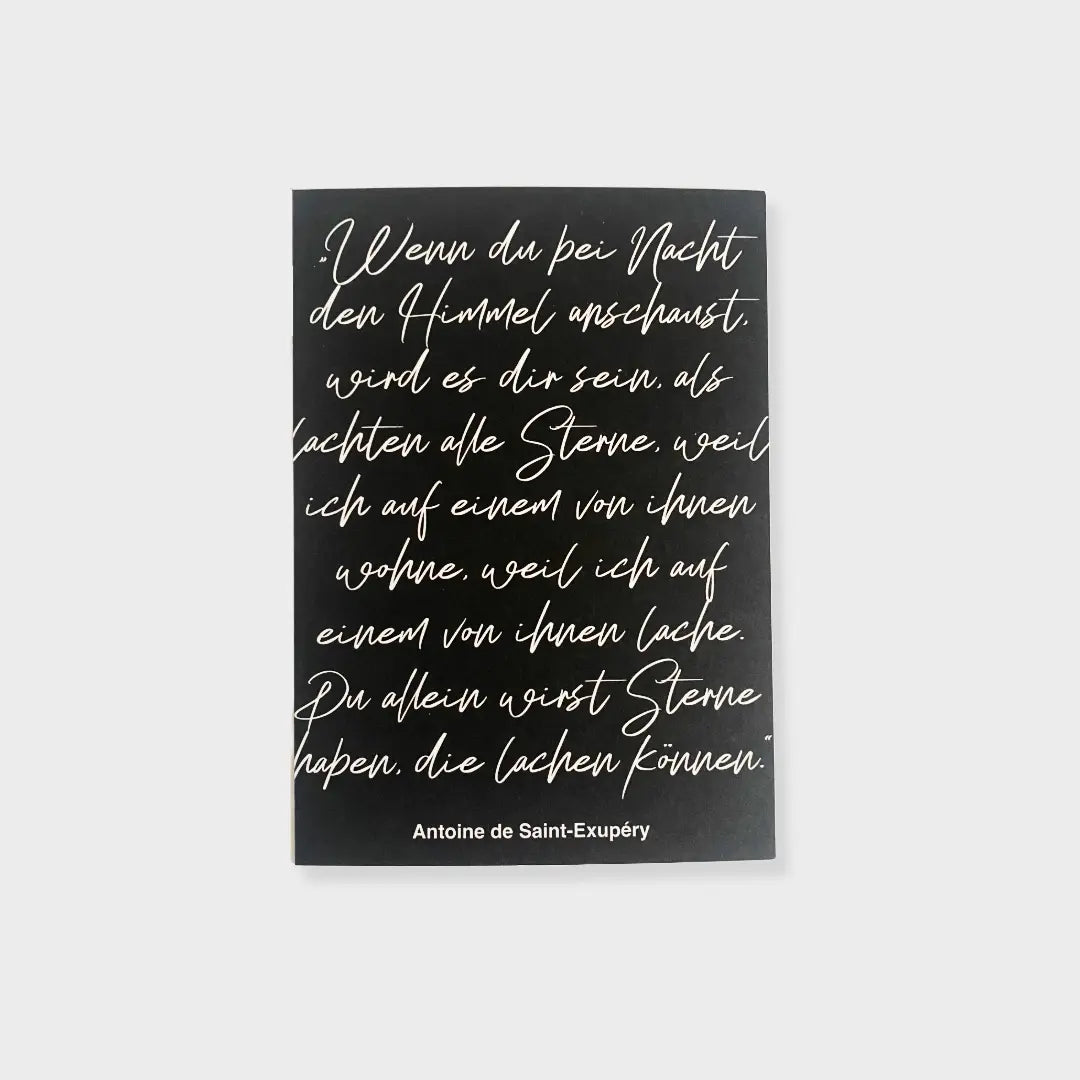 „Wenn du bei Nacht
den Himmel anschaust,
wird es dir sein, als
lachten alle Sterne, weil
ich auf einem von ihnen
wohne, weil ich auf
einem von ihnen lache.
Du allein wirst Sterne
haben, die lachen können.“
Antoine de Saint-Exupéry